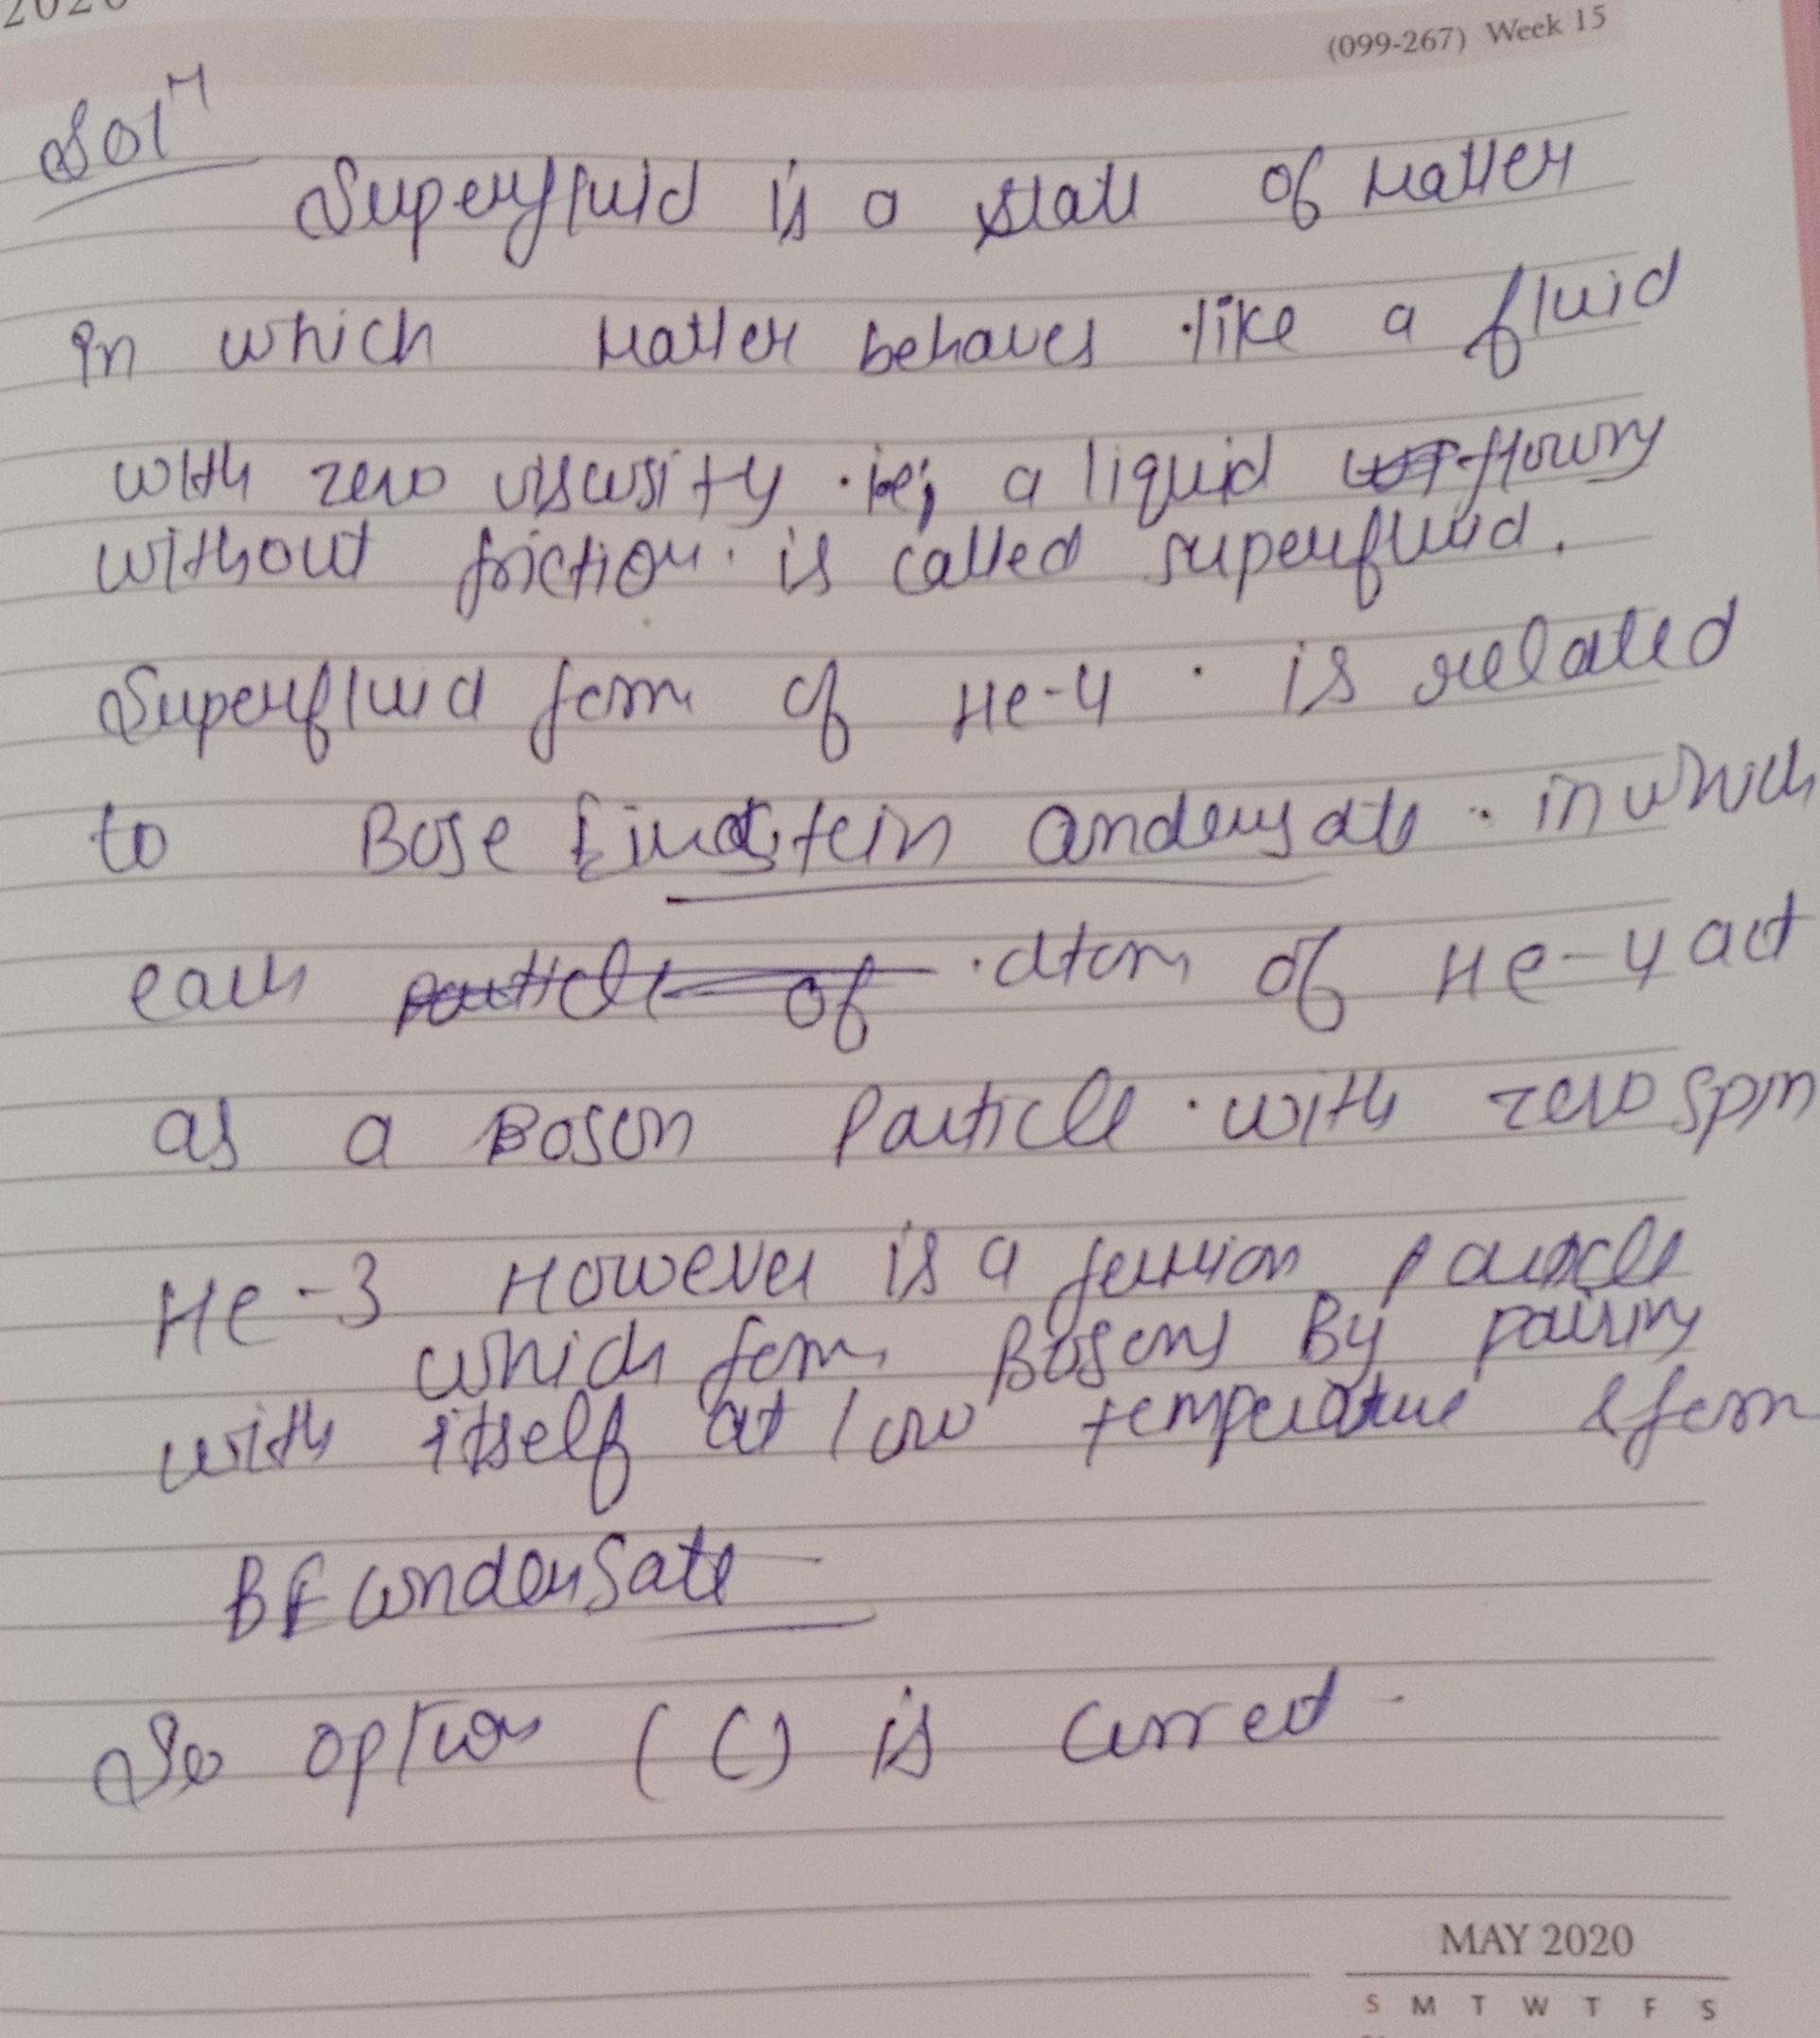 2020
(099-267) Week 15
Solⁿ
Superfluid is a state of matter
in which matter behaves like a fluid
with zero viscosity ie; a liquid flowing
without friction is called superfluid.
Superfluid form of He-4 is related
to Bose Einstein condensate in which
each particle of atom of He-4 act
as a Boson Particle with zero spin
He-3 However is a fermion particle
which form Bosons By pairing
with itself at low temperature & form
BE condensate
So option (C) is correct
MAY 2020
S M T W T F S